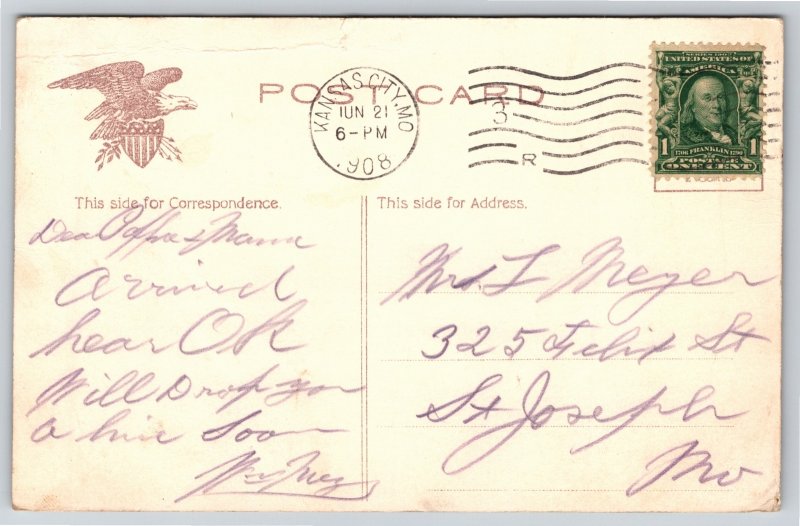 POST CARD
KANSAS CITY, MO
JUN 21
6-PM
1908
3
R
SERIES 1902
UNITED STATES OF
AMERICA
1 1
1706 FRANKLIN 1790
POSTAGE
ONE CENT
This side for Correspondence.
Dear Papa & Mama
Arrived
hear OK
Will Drop you
a line Soon
This side for Address.
Mrs. L Meyer
325 Felix St
St Joseph
Mo